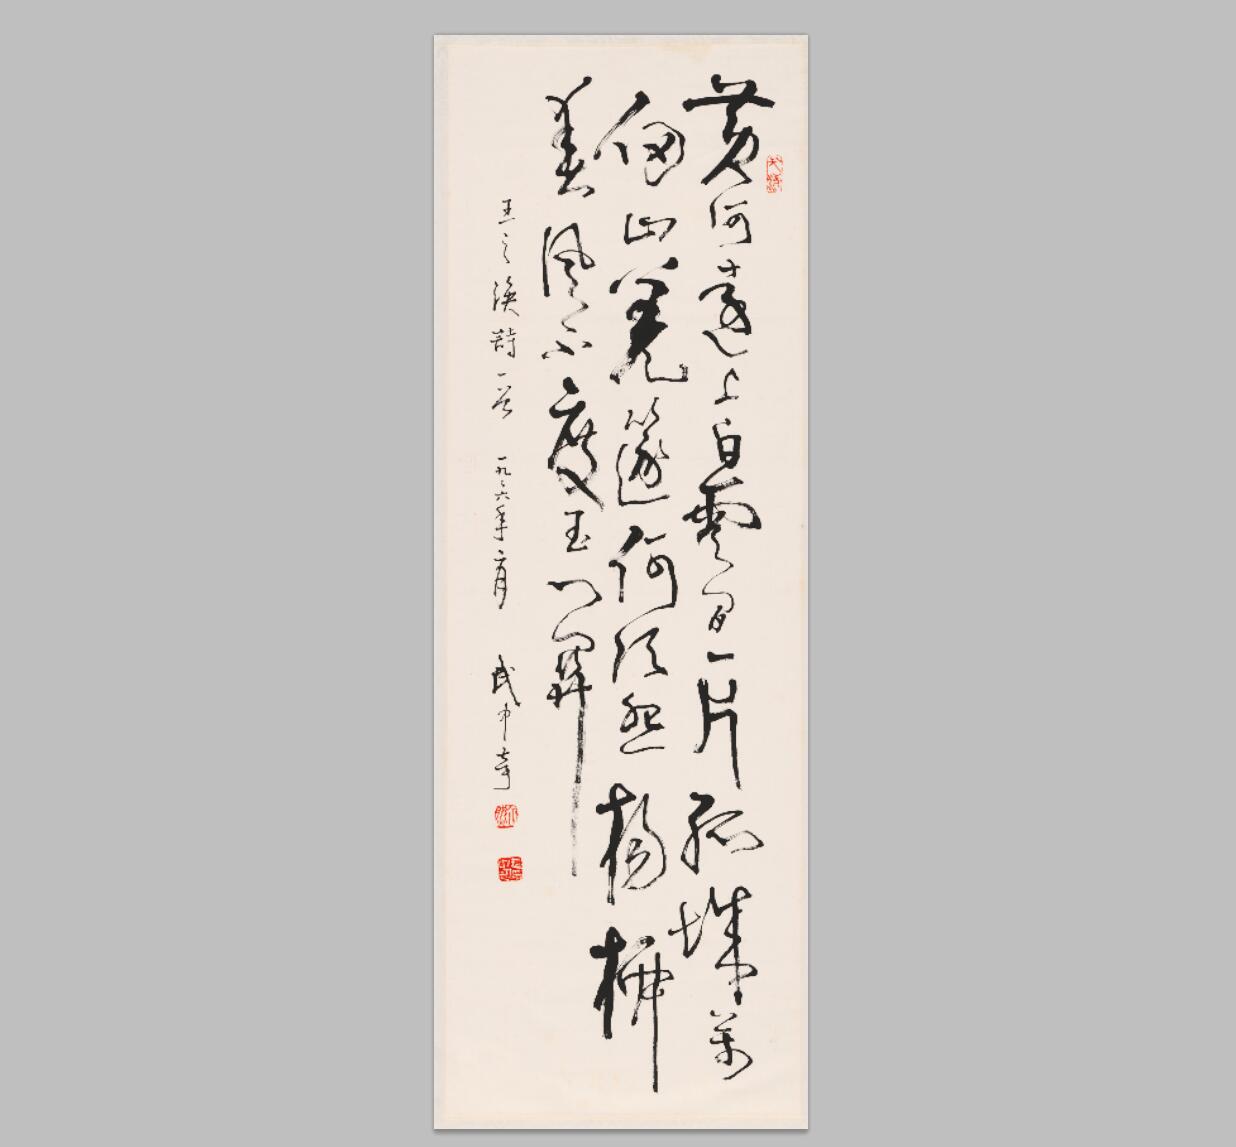 黄河远上白云间一片孤城万
仞山羌邃何须怨杨柳
春风不度玉门关
王之涣诗一首 一九八六年二月 武中奇